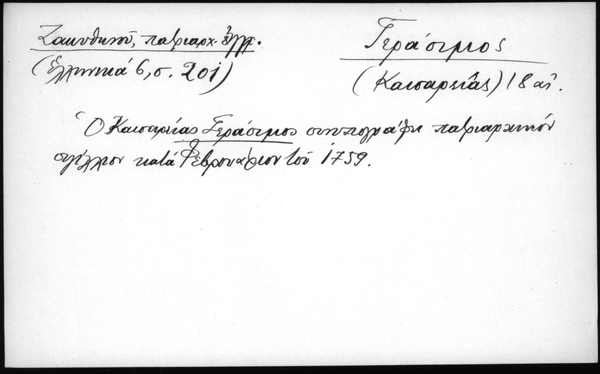 Ζακυθηνοῦ, πατριαρχ. ἔγγρ.
(Ἑλληνικά 6, σ. 201)
Γεράσιμος
(Καισαρείας) 18 αἰ.
Ὁ Καισαρείας Γεράσιμος συνυπογράφει πατριαρχικόν
σιγίλλιον κατά Φεβρουάριον τοῦ 1759.